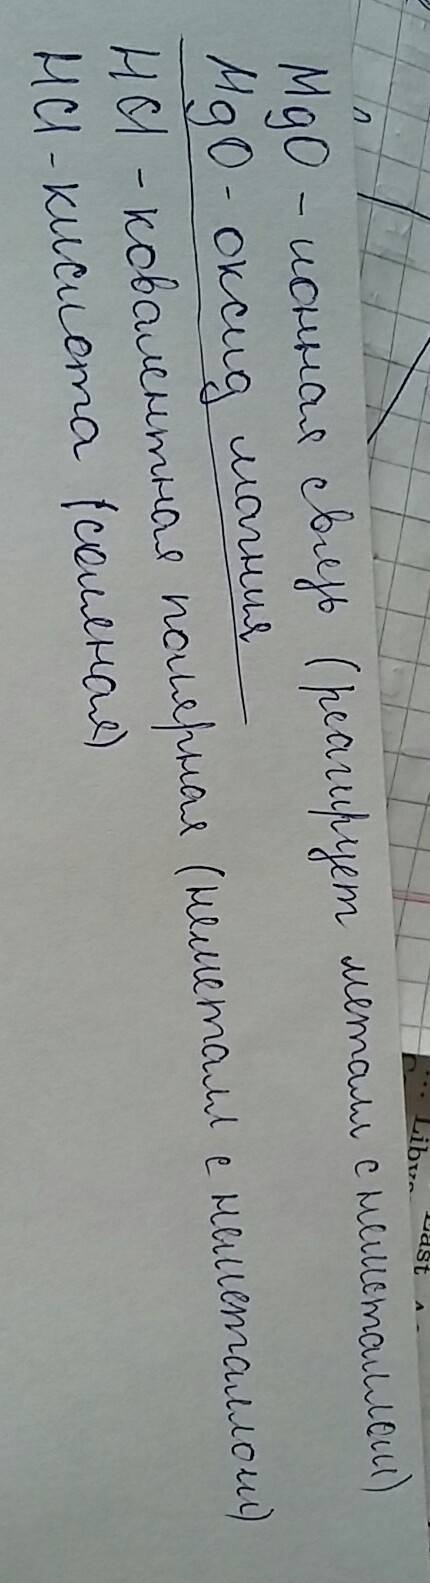 MgO - ионная связь (реагирует металл с неметаллом)
MgO - оксид магния
HCl - ковалентная полярная (неметалл с неметаллом)
HCl - кислота (соляная)
Last